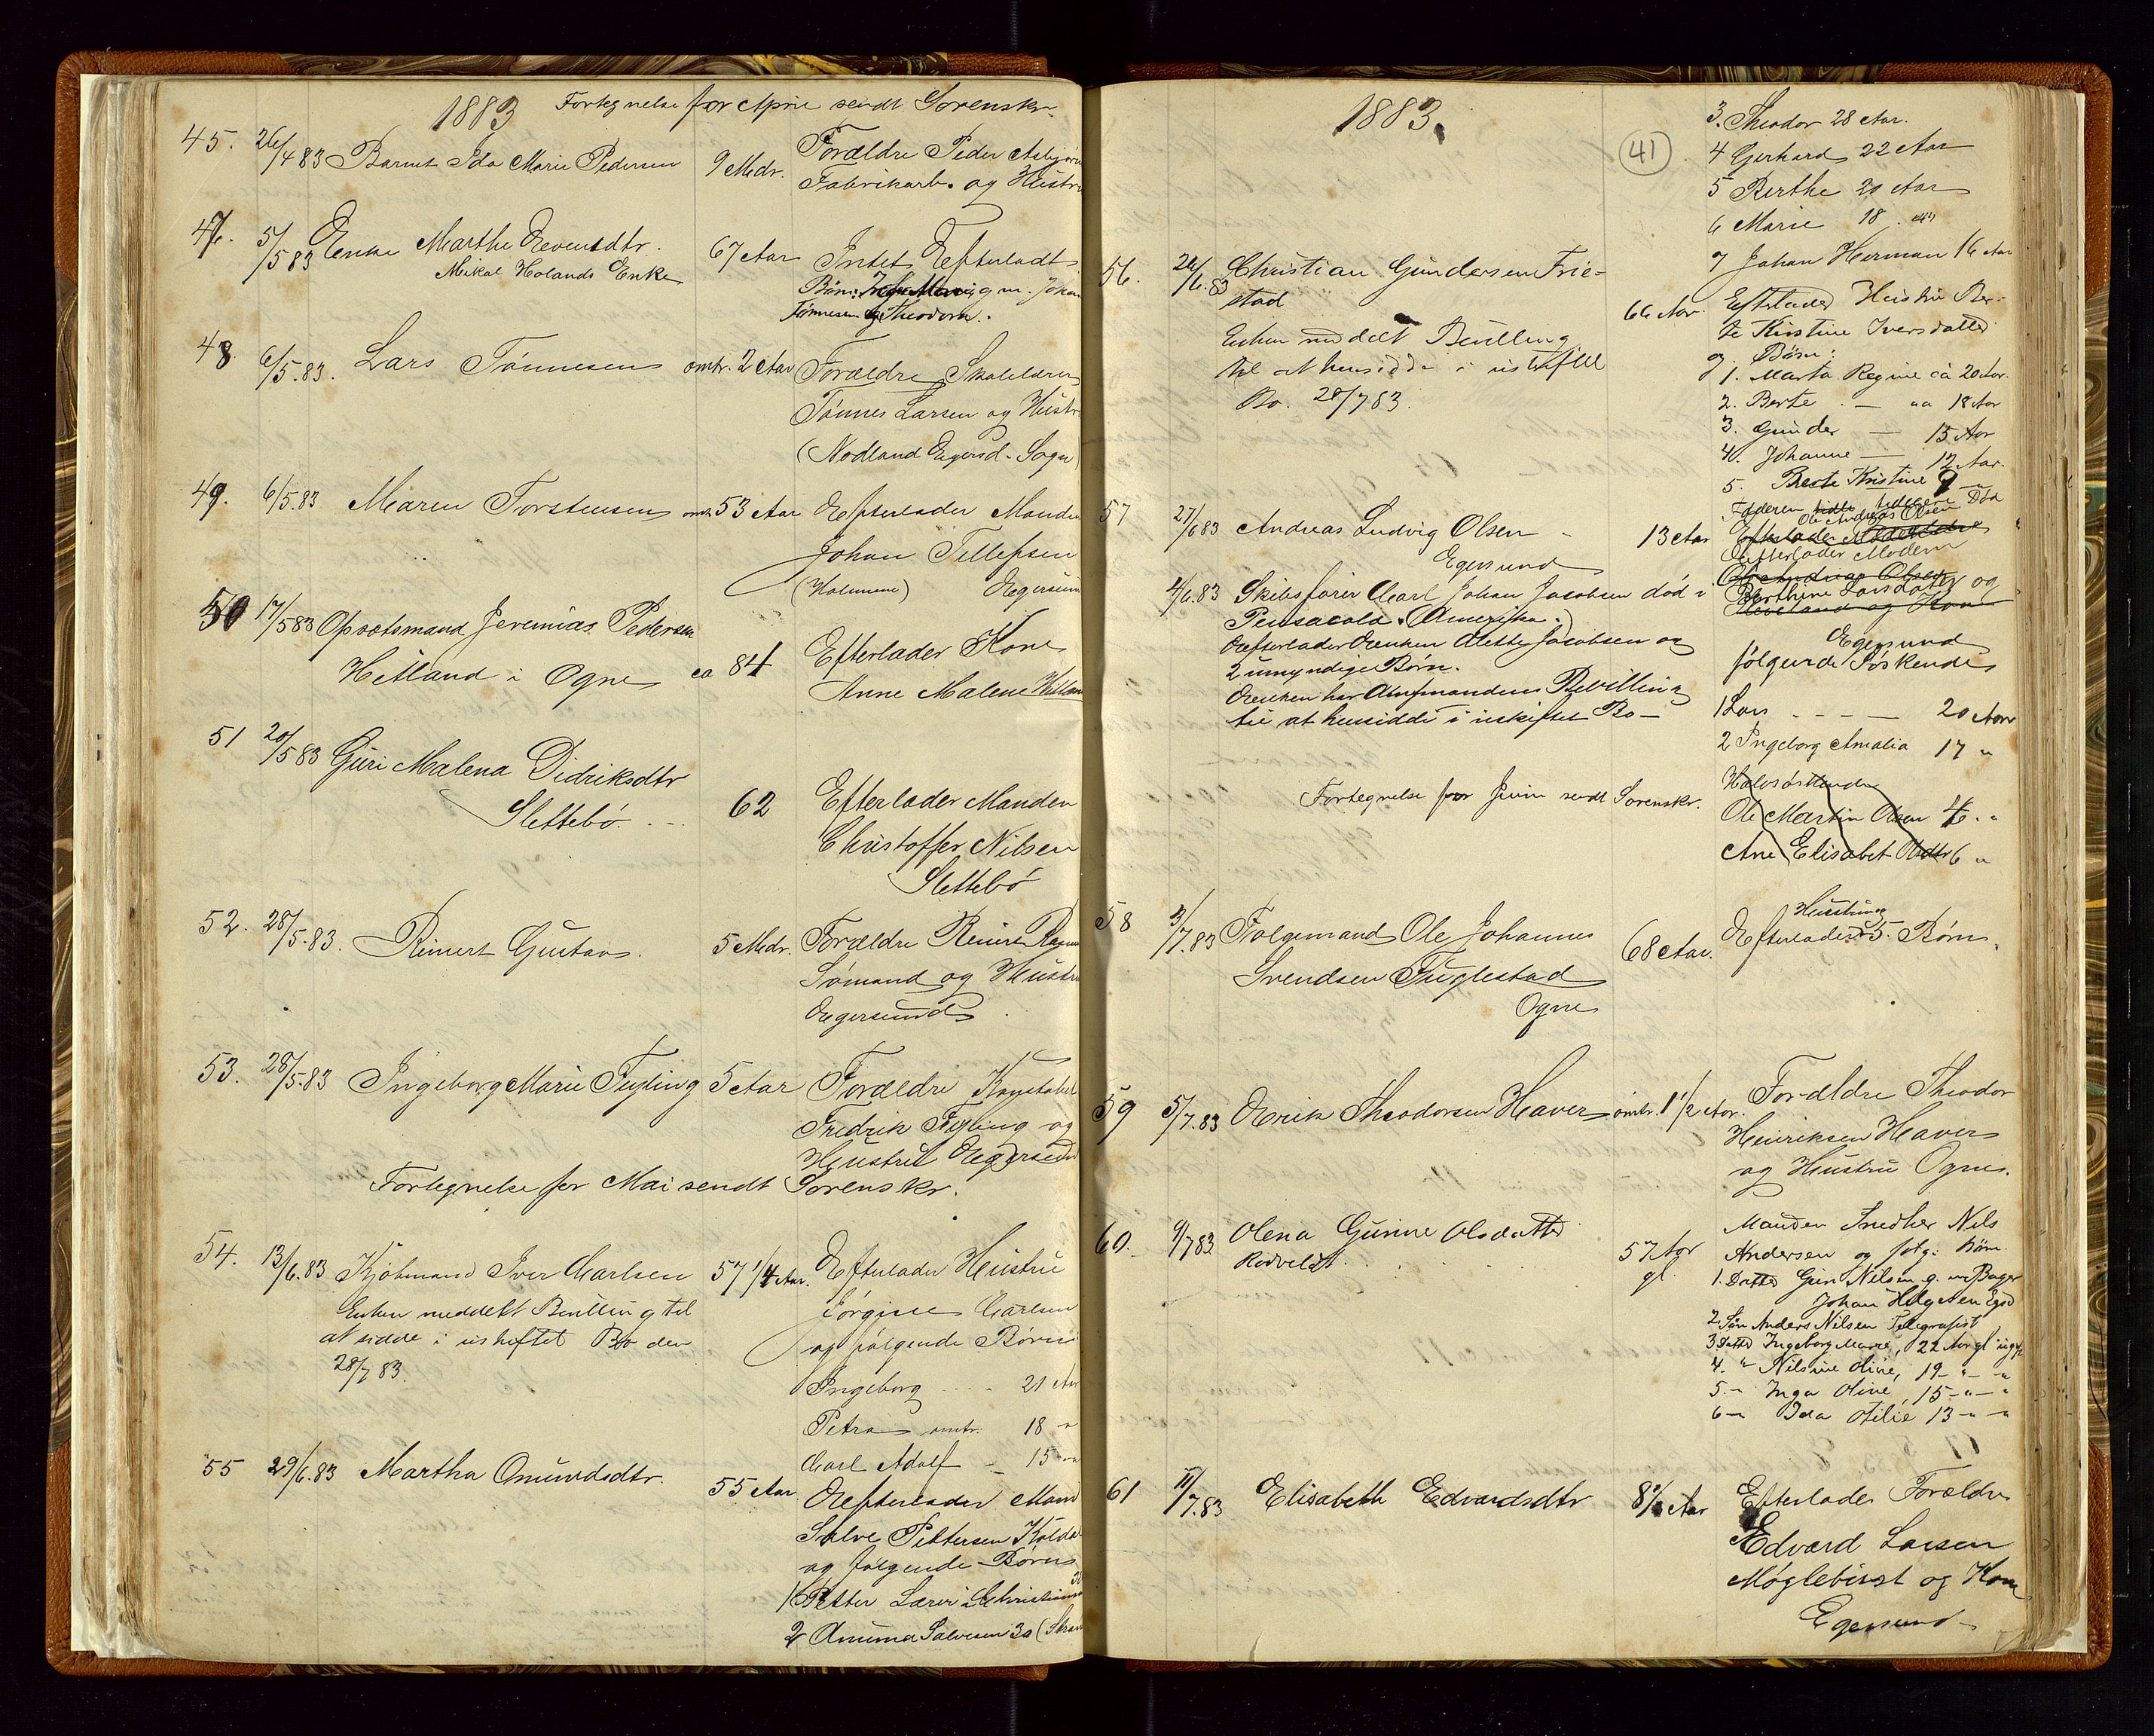 1883 Fortegnelse for April sendt Sorenskr.
45. 26/4 83 Barnet Ida Marie Pedersen 9 Mdr. Forældre Peder Asbjørn
Fabrikarb. og Hustru
47. 5/5 83 Enke Marthe Evensdtr. 67 Aar Intet Efterladt
Mikal Holands Enke
Børn: g m. Johan
Tønnesen og Theodora.
48 6/5.83. Lars Tønnesen omtr. 2 Aar Forældre Skolelærer
Tønnes Larsen og Hustru
(Nodland Egersd. Sogn)
49. 6/5.83 Maren Torstensen omtr 53 Aar Efterlader Manden
Johan Tellefsen
(Holmene) Egersund
50 17/5 83 Opsætsmand Jeremias Pedersen
Hetland i Ogne ca 84 Efterlader Kone
Anne Malene Hetland
51 20/5 83 Guri Malena Didriksdtr
Slettebø. 62 Efterlader Manden
Christoffer Nilsen
Slettebø
52. 28/5.83. Reinert Gustav. 5 Mdr. Forældre Reinert
Sømand og Hustru
Egersund
53. 28/5.83 Ingeborg Marie Fyling 5 Aar Forældre Konstabel
Fredrik Fyling og
Hustru Egersund
Fortegnelse for Mai sendt Sorenskr.
54. 13/6.83 Kjøbmand Iver Carlsen 57 1/4 Aar. Efterlader Hustru
Enken meddelt Bevilling til Jørgine Carlsen
at sidde i uskiftet Bo den og følgende Børn
28/7 83.
Ingeborg 21 Aar
Petra omtr. 18 "
Carl Adolf 15 "
55 29/6.83 Martha Omundsdtr. 55 Aar Efterlader Mand
Salve Pettersen
og følgende Børn
1 Petter Lærer i Christiania
2 Salvesen 30
1883.
41
3. Theodor 28 Aar.
4 Gerhard 22 Aar
5 Berthe 20 Aar
6 Marie 18
7 Johan Herman 16 Aar
56. 24/6.83 Christian Gundersen Frie-
stad 66 Aar. Efterlader Hustru Ber-
te Kirstine Iversdatter
Enken meddelt Bevilling
til at hensidde i uskiftet
Bo. 28/7 83.
og Børn:
1. Marta Regine ca 20 Aar.
2. Berte — 18 Aar
3. Gunder — 15 Aar
4. Johanne — 12 Aar.
5. Berte Kristine 9 "
57 27/6 83 Andreas Ludvig Olsen 13 Aar
Egersund
Faderen tidligere Død
Ole Andreas Olsen
Efterlader
Efterlader Moderen
Ole Andreas Olsen
Berthine Larsdatter og
og Kone
Egersund
følgende Søskende
1 Lars — 20 Aar
2 Ingeborg Amalia 17 "
Halvsøskende
Ole Martin Olsen
Ane Elisabet Olsdtr 6 "
4/6.83 Skibsfører Carl Johan Jacobsen død i
Pensacola. (Amerika.)
Efterlader Enken Alette Jacobsen og
2 umyndige Børn.
Enken har Amtmandens Bevilling
til at hensidde i uskiftet Bo —
Fortegnelse for Juni sendt Sorenskr.
58 3/7.83 Folgemand Ole Johannes 68 Aar. Efterlader Hustru og 5 Børn.
Svendsen Fuglestad
Ogne
59 5/7.83 Erik Theodorsen Haver omtr. 1 1/2 Aar. Forældre Theodor
Henriksen Haver
og Hustru Ogne.
60. 9/7 83 Olena Gurine Olsdatter 57 Aar
gl.
Rodvelt.
Manden Snedker Nils
Andersen og følg. Børn.
1. Datter Guri Nilsen g. m Bager
Johan Helgesen Egsd
2 Søn Anders Nilsen Telegrafist
3 Datter Ingeborg Marie, 22 Aar gl ugift
4. " Nilsine Oline, 19 " "
5 " Inga Oline, 15 " "
6 " Ida Otilie 13 " "
61 11/7.83 Elisabeth Edvardsdtr Aar Efterlader Forældre
Edvard Larsen
Møglebust og Kone
Egersund